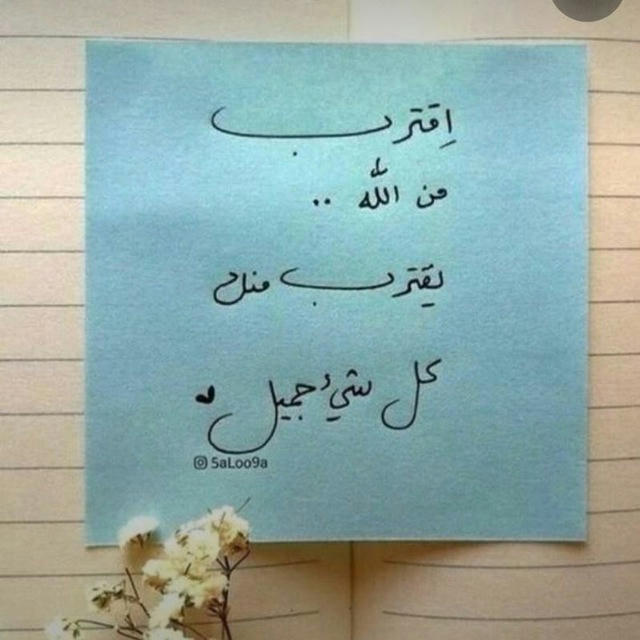 إقترب
من الله ..
يقترب منك
كل شيء جميل
5aLoo9a